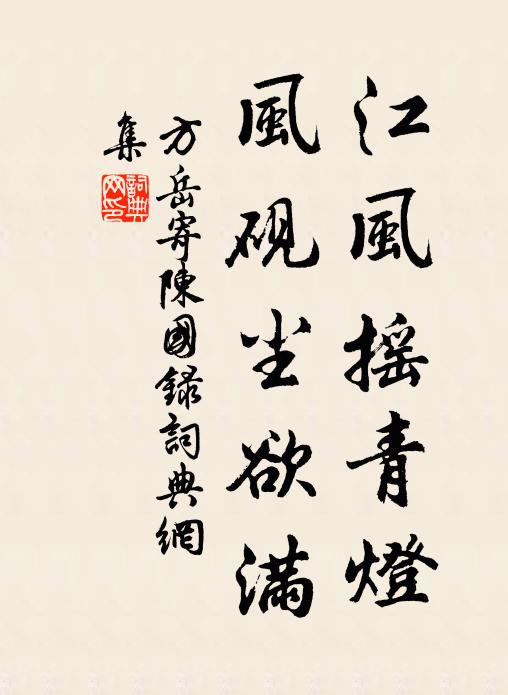 江風摇青燈
風硯尘欲滿
方岳寄陳國録詞典網
集
詞典網印